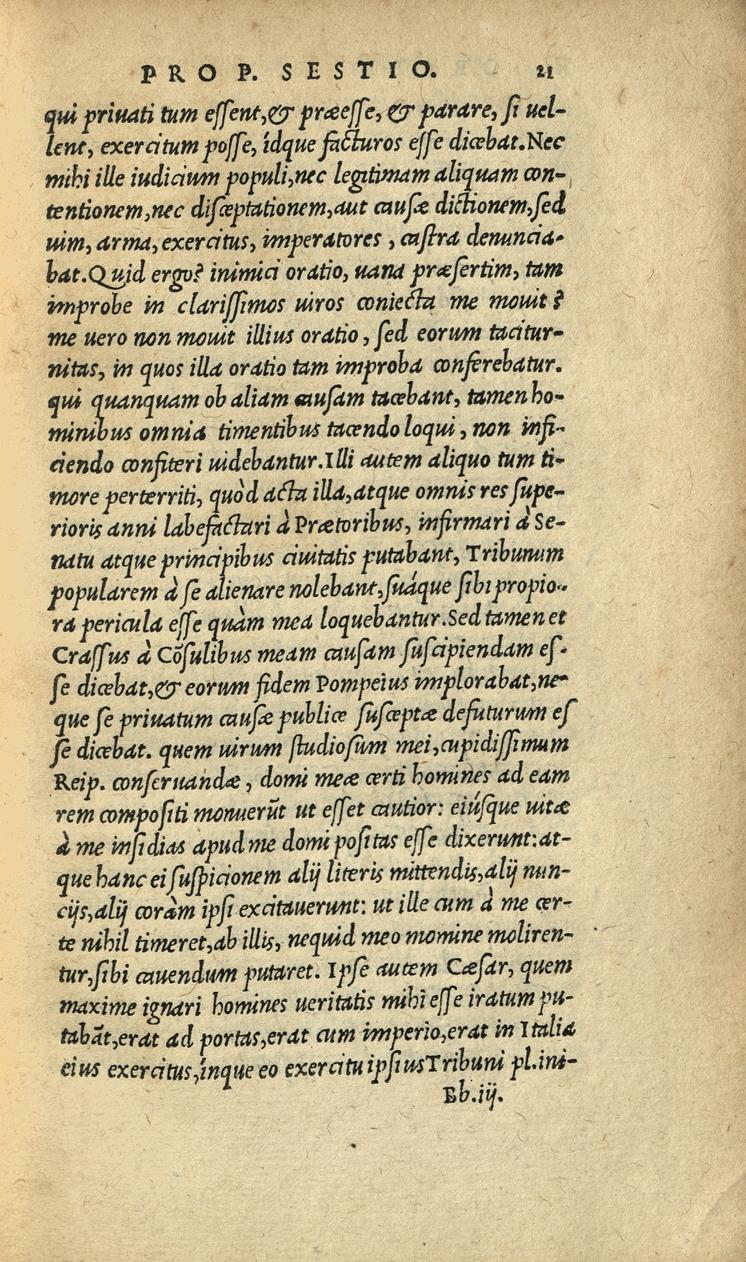 PRO P. SESTIO. 21
qui priuati tum eſſent,& præeſſe, & parare, ſi uel-
lent, exercitum poſſe, ídque facturos eſſe dicebat.Nec
mihi ille iudicium populi,nec legitimam aliquam con-
tentionem,nec diſceptationem,aut cauſæ dictionem,ſed
uim, arma, exercitus, imperatores , caſtra denuncia-
bat.Quid ergo? inimici oratio, uana præſertim, tam
improbe in clariſſimos uiros coniecta me mouit ?
me uero non mouit illius oratio , ſed eorum tacitur-
nitas, in quos illa oratio tam improba conferebatur.
qui quanquam ob aliam cauſam tacebant, tamen ho-
minibus omnia timentibus tacendo loqui , non infi-
ciendo confiteri uidebantur.Illi autem aliquo tum ti-
more perterriti, quòd acta illa,atque omnis res ſupe-
rioris anni labefactari à Prætoribus, infirmari à Se-
natu atque principibus ciuitatis putabant, Tribunum
popularem à ſe alienare nolebant,ſuáque ſibi propio-
ra pericula eſſe quàm mea loquebantur.Sed tamen et
Craſſus à Cõſulibus meam cauſam ſuſcipiendam eſ-
ſe dicebat,& eorum fidem Pompeius implorabat,ne-
que ſe priuatum cauſæ publice ſuſceptæ defuturum eſ
ſe dicebat. quem uirum ſtudioſum mei,cupidiſſimum
Reip. conſeruandæ , domi meæ certi homines ad eam
rem compoſiti monuerūt ut eſſet cautior: eiúſque uitæ
à me inſidias apud me domi poſitas eſſe dixerunt:at-
que hanc ei ſuſpicionem alij literis mittendis,alij nun-
cijs,alij coràm ipſi excitauerunt: ut ille cum à me cer-
te nihil timeret,ab illis, nequid meo momine moliren-
tur,ſibi cauendum putaret. Ipſe autem Cæſar, quem
maxime ignari homines ueritatis mihi eſſe iratum pu-
tabāt,erat ad portas,erat cum imperio,erat in Italia
eius exercitus,ínque eo exercitu ipſius Tribuni pl.ini-
Bb.iij.